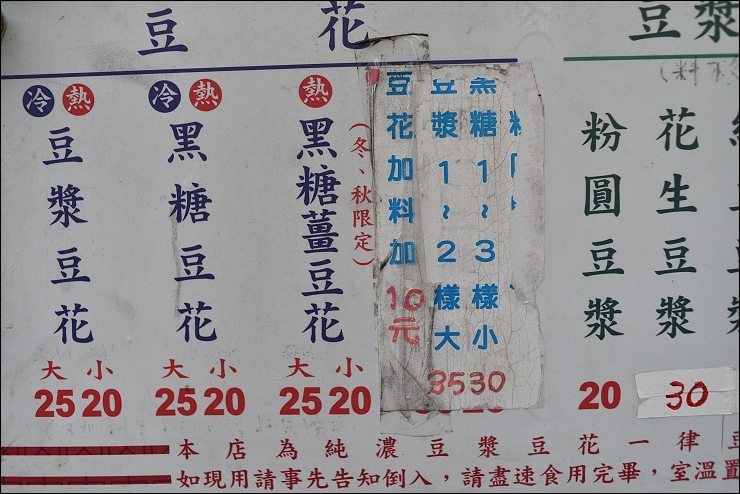 豆花
冷 熱
豆漿豆花
大 小
25 20
冷 熱
黑糖豆花
大 小
25 20
熱
黑糖薑豆花
(冬、秋限定)
大 小
25 20
豆花加料加10元
豆漿1~2樣大
35
黑糖1~3樣小
30
豆漿
粉圓豆漿
20
花生豆漿
30
本店為純濃豆漿豆花一律
如現用請事先告知倒入，請盡速食用完畢，室溫置